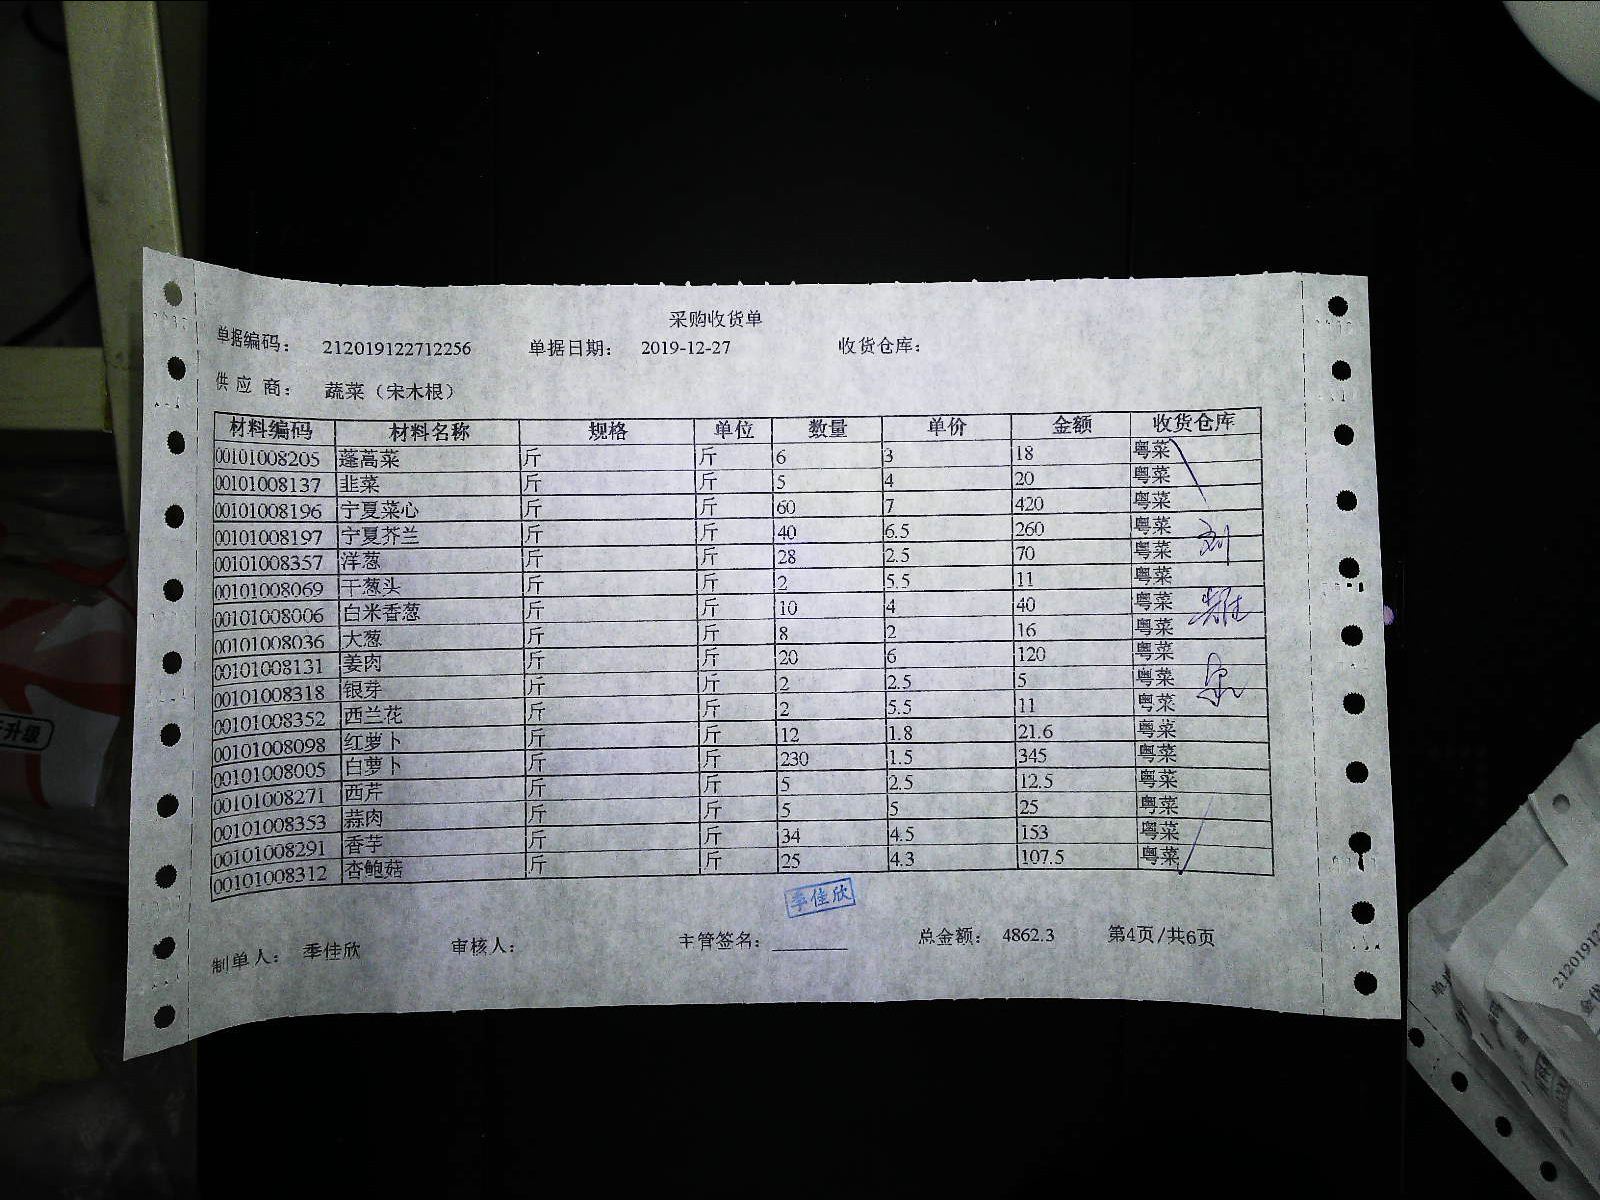 采购收货单
单据编码: 212019122712256 单据日期: 2019-12-27 收货仓库:
供应商: 蔬菜（宋木根）
材料编码 材料名称 规格 单位 数量 单价 金额 收货仓库
00101008205 蓬蒿菜 斤 斤 6 3 18 粤菜
00101008137 韭菜 斤 斤 5 4 20 粤菜
00101008196 宁夏菜心 斤 斤 60 7 420 粤菜
00101008197 宁夏芥兰 斤 斤 40 6.5 260 粤菜
00101008357 洋葱 斤 斤 28 2.5 70 粤菜
00101008069 干葱头 斤 斤 2 5.5 11 粤菜
00101008006 白米香葱 斤 斤 10 4 40 粤菜
00101008036 大葱 斤 斤 8 2 16 粤菜
00101008131 姜肉 斤 斤 20 6 120 粤菜
00101008318 银芽 斤 斤 2 2.5 5 粤菜
00101008352 西兰花 斤 斤 2 5.5 11 粤菜
00101008098 红萝卜 斤 斤 12 1.8 21.6 粤菜
00101008005 白萝卜 斤 斤 230 1.5 345 粤菜
00101008271 西芹 斤 斤 5 2.5 12.5 粤菜
00101008353 蒜肉 斤 斤 5 5 25 粤菜
00101008291 香芋 斤 斤 34 4.5 153 粤菜
00101008312 杏鲍菇 斤 斤 25 4.3 107.5 粤菜
季佳欣
制单人: 季佳欣 审核人: 主管签名: 总金额: 4862.3 第4页/共6页
升级